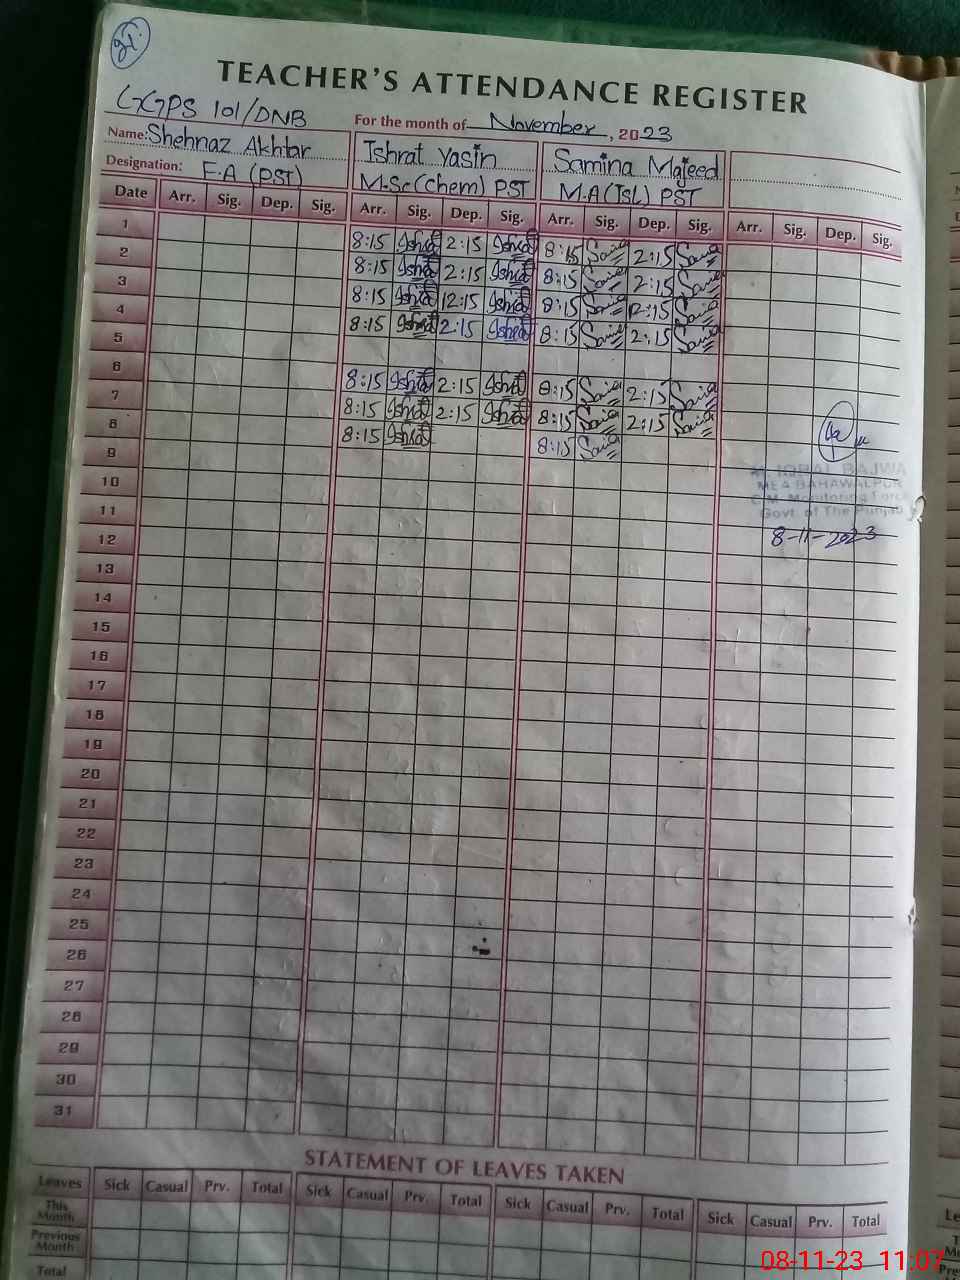 TEACHER'S ATTENDANCE REGISTER
GGPS 101/DNB
For the month of November, 2023
Name: Shehnaz Akhtar Ishrat Yasin Samina Majeed
Designation: F.A (PST) M.Sc(chem) PST M.A(Isl) PST
Date Arr. Sig. Dep. Sig. Arr. Sig. Dep. Sig. Arr. Sig. Dep. Sig. Arr. Sig. Dep. Sig.
1 8:15 Ishrat 2:15 Ishrat 8:15 2:15
2 8:15 Ishrat 2:15 Ishrat 8:15 2:15
3 8:15 Ishrat 12:15 Ishrat 8:15 12:15
4 8:15 Ishrat 2:15 Ishrat 8:15 2:15
5
6 8:15 Ishrat 2:15 Ishrat 8:15 2:15
7 8:15 Ishrat 2:15 Ishrat 8:15 2:15
8 8:15 Ishrat 8:15
9
10
11
12
13
14
15
16
17
18
19
20
21
22
23
24
25
26
27
28
29
30
31
IQBAL BAJWA
MEA BAHAWALPUR
C.M. Monitoring Force
Govt. of The Punjab
8-11-2023
STATEMENT OF LEAVES TAKEN
Leaves Sick Casual Prv. Total Sick Casual Prv. Total Sick Casual Prv. Total Sick Casual Prv. Total
This Month
Previous Month
Total
08-11-23 11:07